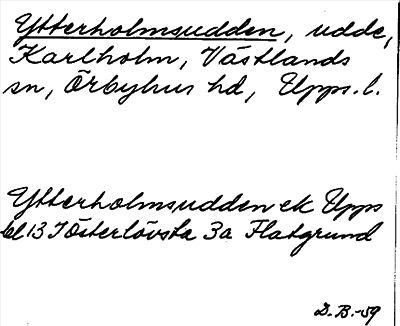 Ytterholmsudden, udde,
Karlholm, Västlands
sn, Örbyhus hd, Upps. l.
Ytterholmsudden ek Upps
bl 13 I Österlövsta 3a Flatgrund
D. B. -59